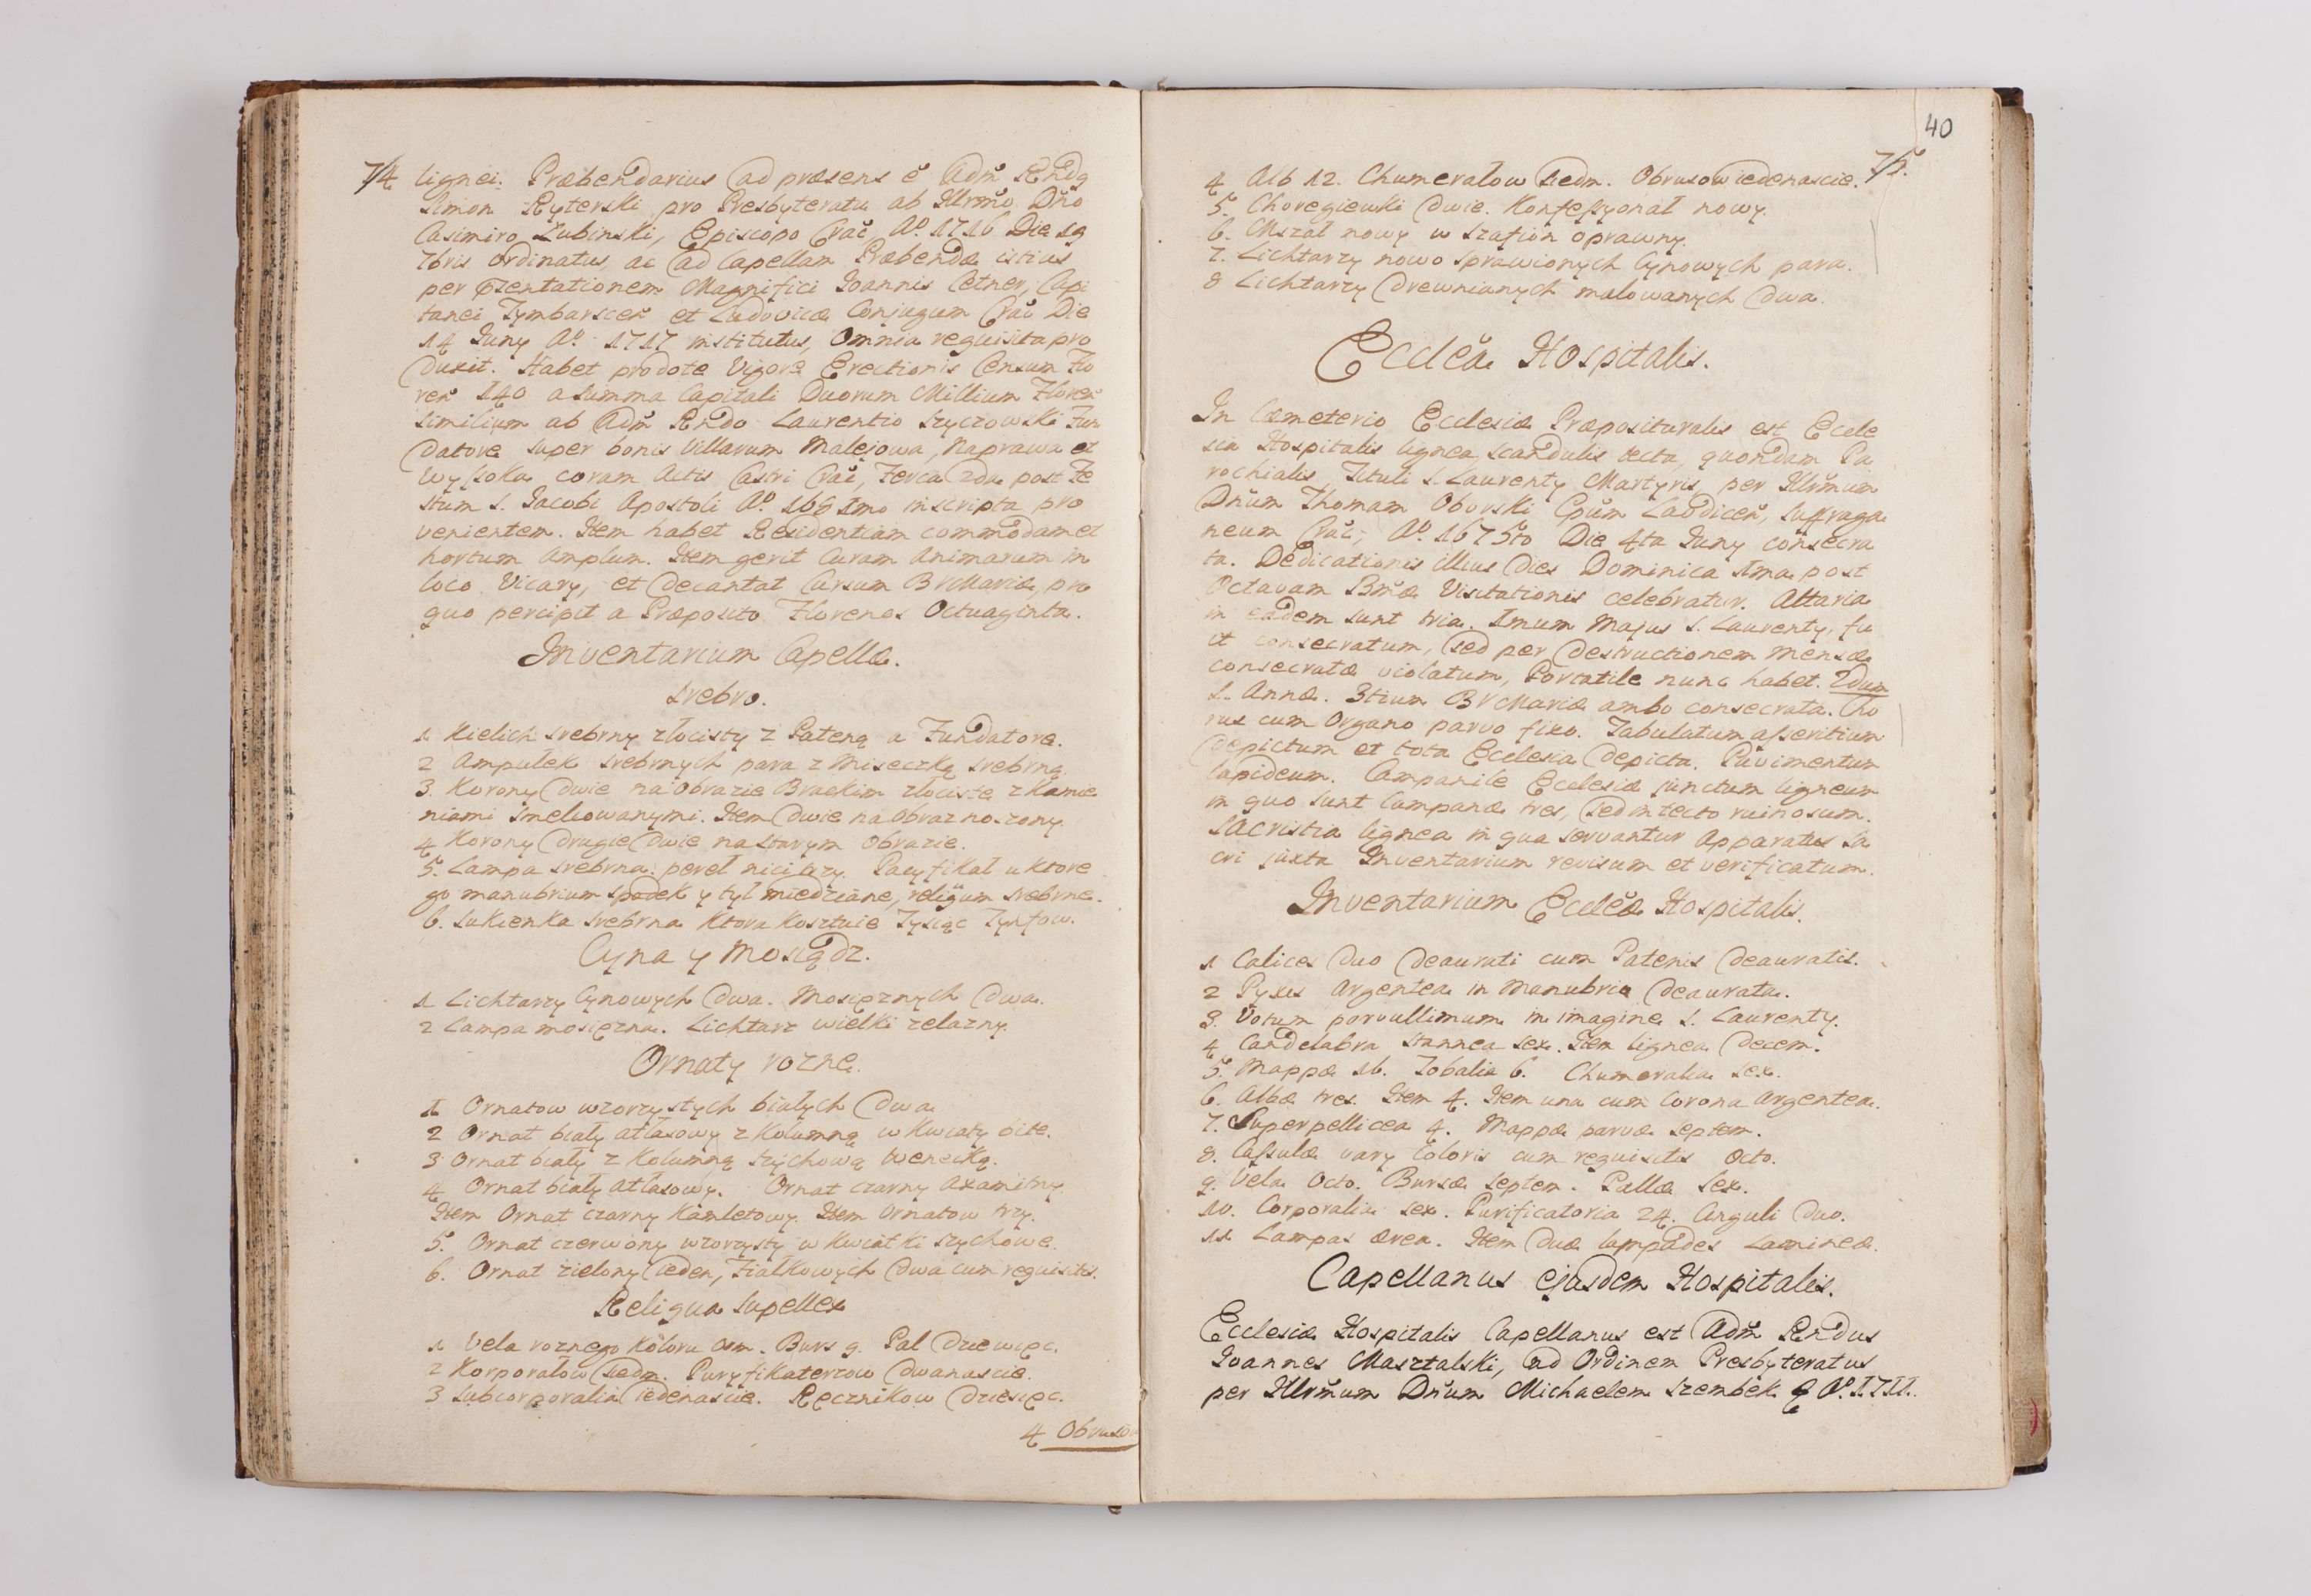 74
lignei. Præbendarius ad præsens e Adm Rnds
Simon Ryterski pro Presbyteratu ab Illrmo Dno
Casimiro Łubinski, Episcopo Crac, Ao. 1716 Die 19
7bris ordinatus, ac ad Capellam Præbendæ istius
per Præntationem Magnifici Joannis Cetner, Capi
tanei Tymbarscen et Ludovicæ Conjugum Crac Die
14 Juny Ao. 1717 institutus, Omnia requisita pro
duxit. Habet pro dote Vigore Erectionis Censum Flo
ren 140 a Summa Capitali Duorum Millium Floren
similium ab Adm Rndo Laurentio Szyczowski Fun
datore super bonis Villarum Malejowa, Naprawa et
Wysoka coram Actis Castri Crac, Feria 2da post Fe
stum S. Jacobi Apostoli Ao. 1681mo inscripta pro
venientem. Item habet Residentiam commodam et
hortum amplum. Item gerit Curam Animarum in
loco Vicary, et decantat Cursum BVMariæ, pro
quo percipit a Præposito Florenos Octuaginta.
Inventarium Capellæ.
Srebro.
1 Kielich srebrny złocisty z Pateną a Fundatore.
2 Ampułek srebrnych para z Miseczką srebrną.
3. Korony dwie na Obrazie Brackim złociste z kamie
niami smelcowanymi. Item dwie na obraz noszony.
4 Korony drugie dwie na starym Obrazie.
5. Lampa srebrna. pereł nici trzy. Pacyfikał u ktore
go manubrium spodek y tył miedziane, reliqum srebrne.
6. Sukienka srebrna ktora kosztuie Tysiąc Tynfow.
Cyna y Mosiądz.
1 Lichtarzy Cynowych dwa. Mosięznych dwa.
2 Lampa mosięzna. Lichtarz wielki zelazny.
Ornaty rozne.
1 Ornatow wzorzystych białych dwa
2 Ornat biały atłasowy z Kolumną w kwiaty bite.
3 Ornat biały z Kolumną szychową Wenecką.
4 Ornat biały atłasowy. Ornat czarny axamitny
Item Ornat czarny kamletowy. Item Ornatow trzy.
5. Ornat czerwony wzorzysty w kwiatki szychowe.
6. Ornat zielony ieden, Fiałkowych dwa cum requisitis.
Reliqua Supellex
1 Vela roznego koloru osm. Burs 9. Pal dziewięc.
2 Korporałow siedm. Puryfikaterzow dwanascie.
3 Subcorporalia iedenascie. Ręcznikow dziesięc.
4 Obrusow
40
75.
4 Alb 12. Chumerałow siedm. Obrusow iedenascie.
5. Choregiewki dwie. Konfessyonał nowy.
6. Mszał nowy w szafion oprawny.
7. Lichtarzy nowo sprawionych Cynowych para.
8 Lichtarzy drewnianych malowanych dwa.
Ecclea Hospitalis.
In Cœmeterio Ecclesiæ Præposituralis est Eccle
sia Hospitalis lignea, scandulis tecta, quondam Pa
rochialis, Tituli S. Laurenty Martyris, per Illrmum
Dnum Thomam Oborski Epum Laodicen, Suffraga
neum Crac, Ao. 1675to Die 4ta Juny consecra
ta. Dedicationis illius Dies Dominica 1ma post
Octavam Bmæ Visitationis celebratur. Altaria
in eadem sunt tria. 1mum Majus S. Laurenty, fu
it consecratum, sed per destructionem mensæ
consecratæ violatum, Portatile nunc habet. 2dum
S. Annæ. 3tium BVMariæ ambo consecrata. Cho
rus cum Organo parvo fixo. Tabulatum asseritium
depictum et tota Ecclesia depicta. Pavimentum
lapideum. Campanile Ecclesiæ junctum ligneum
in quo sunt Campanæ tres, sed in tecto ruinosum.
Sacristia lignea in qua servantur Apparatus sa
cri juxta Inventarium revisum et verificatum.
Inventarium Eccleæ Hospitalis.
1 Calices duo deaurati cum Patenis deauratis.
2 Pyxis Argentea in Manubrio deaurata.
3. Votum parvullimum in imagine S. Laurenty.
4 Candelabra Stannea sex. Item lignea decem.
5. Mappæ 16. Tobalia 6. Chumeralia sex.
6. Albæ tres. Item 4. Item una cum Corona Argentea.
7. Superpellicea 4. Mappæ parvæ septem.
8. Casulæ vary Coloris cum requisitis Octo.
9. Vela Octo. Bursæ septem. Pallæ sex.
10. Corporalia sex. Purificatoria 24. Cinguli duo.
11 Lampas ærea. Item duæ lampades Lamineæ.
Capellanus ejusdem Hospitalis.
Ecclesiæ Hospitalis Capellanus est Adm Rndus
Joannes Masztalski, ad Ordinem Presbyteratus
per Illrmum Dnum Michaelem Szembek Ao. 1711.